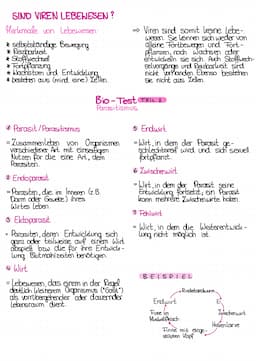 SIND VIREN LEBEWESEN?
Merkmale von Lebewesen
* selbstständige Bewegung
* Reizbarkeit
* Stoffwechsel
* Fortpflanzung
* Wachstum und Entwicklung
* bestehen aus (mind. einer) Zellen
→ Viren sind somit keine Lebe-
wesen. Sie können sich weder von
alleine fortbewegen und fort-
pflanzen, noch wachsen oder
entwickeln sie sich. Auch Stoffwech-
selvorgänge und Reizbarkeit sind
nicht vorhanden. Ebenso bestehen
sie nicht aus Zellen.
Bio-Test TEIL 2
Parasitismus
1 Parasit/Parasitismus
= Zusammenleben von Organismen
verschiedener Art mit einseitigen
Nutzen für die eine Art, dem
Parasiten.
2 Endoparasit
= Parasiten, die im Inneren (z.B.
Darm oder Gewebe) ihres
Wirtes leben.
3 Ektoparasit
= Parasiten, deren Entwicklung sich
ganz oder teilweise auf einem Wirt
abspielt bzw. die für ihre Entwick-
lung Blutmahlzeiten benötigen.
4 Wirt
= Lebewesen, das einem in der Regel
deutlich kleineren Organismus ("Gast")
als vorübergehender oder dauernder
Lebensraum dient.
5 Endwirt
= Wirt, in dem der Parasit ge-
schlechtsreif wird und sich sexuell
fortpflanzt.
6 Zwischenwirt
= Wirt, in dem der Parasit seine
Entwicklung fortsetzt, ein Parasit
kann mehrere Zwischenwirte haben.
7 Fehlwirt
= Wirt, in dem die Weiterentwick-
lung nicht möglich ist.
BEISPIEL
Rinderbandwurm
Endwirt
Ei
Finne im
Muskelfleisch
Zwischenwirt
Hakenlarve
Finne mit einge-
stülptem Kopf